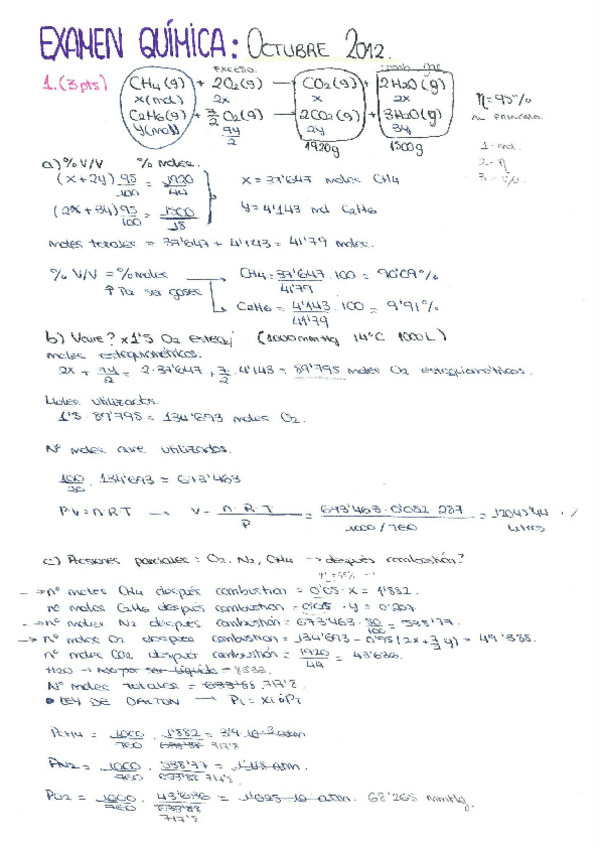 EXAMEN QUÍMICA: OCTUBRE 2012.
EXCESO.
1.(3pts) CH4(g) + 2O2(g) → CO2(g) + 2H2O(g)
x(mol) 2x x 2x η=95%
C2H6(g) + 7/2 O2(g) → 2CO2(g) + 3H2O(g)
y(mol) 7y/2 2y 3y
1920g 1500g
a) % V/V % moles.
(x+2y) 95/100 = 1920/44 x = 37'647 moles CH4
(2x+3y) 95/100 = 1500/18 y = 4'143 mol C2H6
moles totales = 37'647 + 4'143 = 41'79 moles.
% V/V = % moles → CH4: 37'647/41'79 · 100 = 90'09%
↑ Por ser gases → C2H6 = 4'143/41'79 · 100 = 9'91%
b) Vaire? x1'5 O2 esteq (1000mmHg 14°C 1000L)
moles estequiométricos.
2x + 7y/2 = 2·37'647 + 7/2 · 4'143 = 89'795 moles O2 estequiométricos.
Moles utilizados.
1'5 · 89'795 = 134'693 moles O2.
Nº moles aire utilizados.
100/20 · 134'693 = 673'463
PV = nRT → V = n·R·T/P = 673'463·0'082·287/1000/760 = 12045'44 Litros
c) Presiones parciales: O2, N2, CH4 → después combustión?
→ nº moles CH4 después combustion = 0'05 · x = 1'882.
nº moles C2H6 después combustion = 0'05 · y = 0'207.
→ nº moles N2 después combustión = 673'463 · 80/100 = 538'77.
→ nº moles O2 después combustion = 134'693 - 0'95 (2x + 7/2 y) = 49'388.
nº moles CO2 después combustión = 1920/44 = 43'636.
H2O → No por ser líquido = 8333.
Nº moles totales = 717'8
• LEY DE DALTON → Pi = xi·Pt
PCH4 = 1000/760 · 1'882/717'8 = 3'4·10⁻³ atm
PN2 = 1000/760 · 538'77/717'8 = atm.
PO2 = 1000/760 · 43'636/717'8 = 68'265 mmHg.